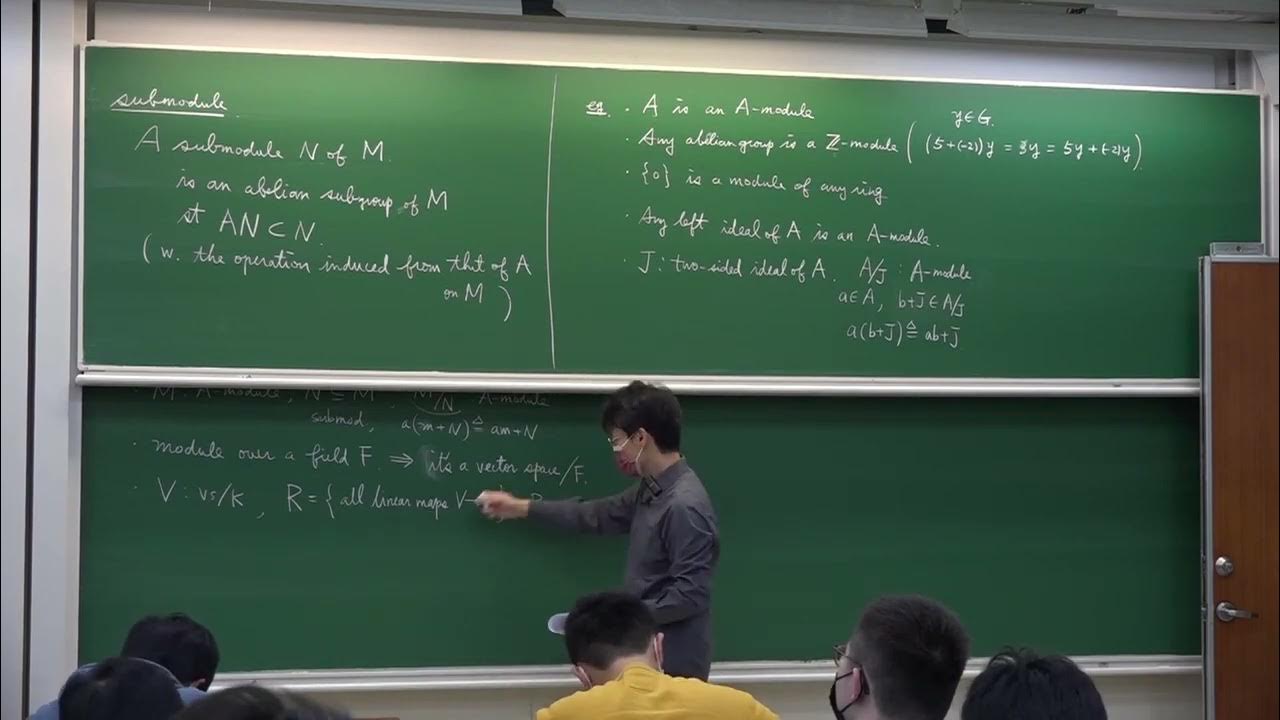 submodule
A submodule N of M.
is an abelian subgroup of M
st AN ⊂ N.
( w. the operation induced from that of A
on M )
eg. · A is an A-module
y∈G.
· Any abelian group is a ℤ-module ( (5+(-2))y = 3y = 5y+(-2)y )
· {0} is a module of any ring
· Any left ideal of A is an A-module.
· J : two-sided ideal of A. A/J : A-module
a∈A, b+J∈A/J
a(b+J) ≜ ab+J
· M : A-module, N ⊆ M, M/N A-module
submod, a(m+N) ≜ am+N
· module over a field F. ⇒ it's a vector space/F.
· V : vs/K, R = { all linear maps V